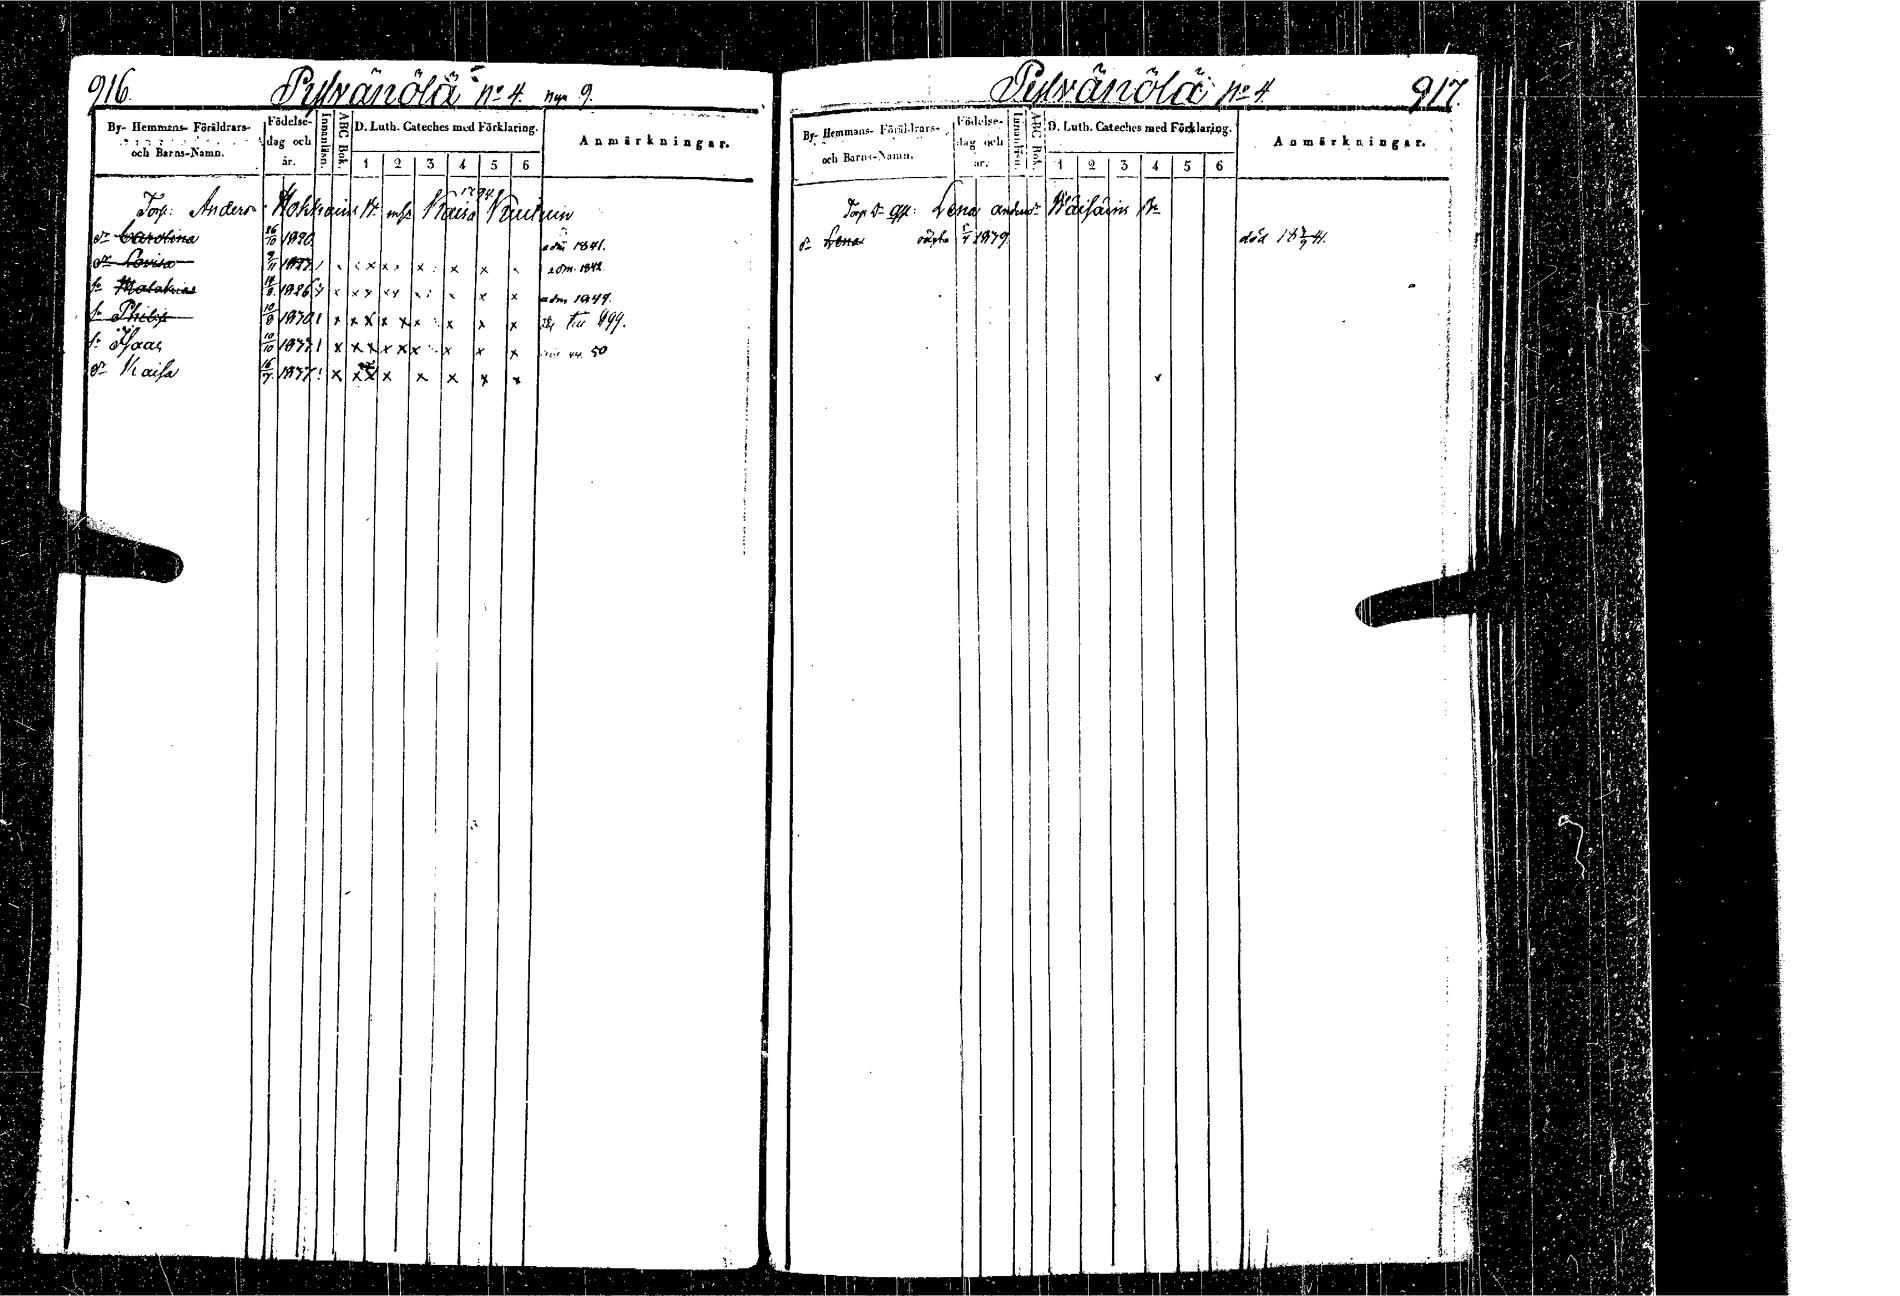 916. Pylvänölä No 4. nya 9.
By- Hemmans- Föräldrars- och Barns-Namn.
Födelse- dag och år.
Innanläsn.
ABC Bok.
D. Luth. Cateches med Förklaring.
1 2 3 4 5 6
Anmärkningar.
1794
Torp: Anders Hokkain Kaisa
dr Carolina 16/10 1820 adm 1841.
dr Lovisa 9/11 1823 adm. 1842
sn Malakias 1826 x x x x x x x adm 1847.
sn Philip 10/8 1830 x x x x x x x x till 899.
sn Isaac 10/10 1833 x x x x x x x x x 50
dr Kaisa 16/7 1837 x x x x x x x x
Pylvänölä No 4. 917.
By- Hemmans- Föräldrars- och Barns-Namn.
Födelse- dag och år.
Innanläsn.
ABC Bok.
D. Luth. Cateches med Förklaring.
1 2 3 4 5 6
Anmärkningar.
Torp Lena Väisäin
dr Lena oägta 1839 död